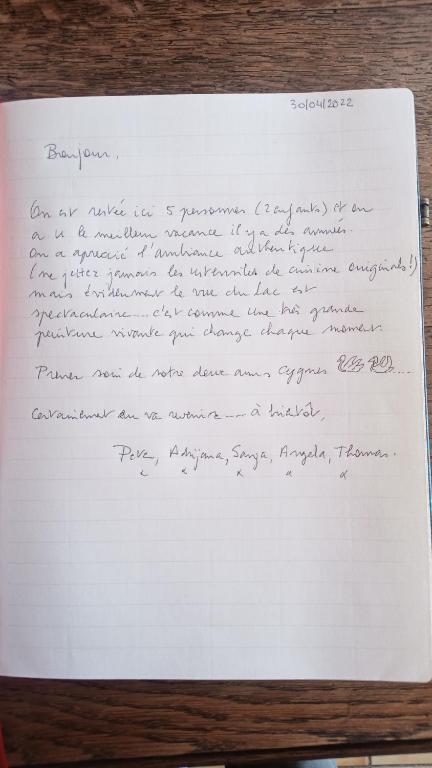 30/04/2022
Bonjour,
On est restée ici 5 personnes (2 enfants) et on
a u le meilleur vacance il y a des années.
On a aprecié l'ambiance authentique
(ne jettez jamais les ustensiles de cuisine originals!)
mais évidenment le vue du Lac est
spectaculaire.... c'est comme une très grande
peinture vivante qui change chaque moment.
Prener soin de notre deux amis cygnes ....
Certainement on va revenire.... à bientôt,
Adrijana, Sanja, Angela, Thomas.